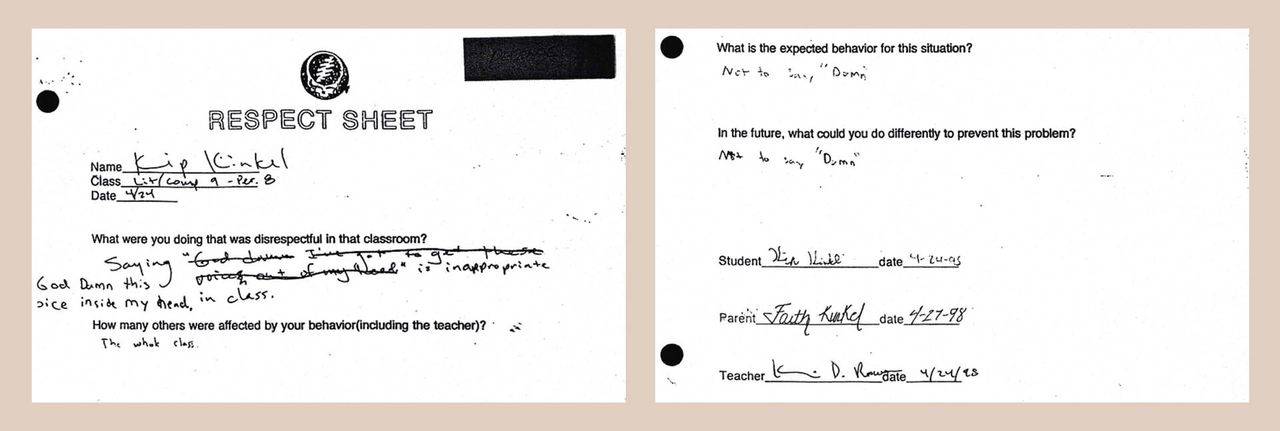 RESPECT SHEET
Name Kip Kinkel
Class Lit/Comp 9 - Per. 8
Date 4/24
What were you doing that was disrespectful in that classroom?
Saying "God damn I've got to get these
voices out of my head" is inappropriate
God Damn this
oice inside my head, in class.
How many others were affected by your behavior(including the teacher)?
The whole class.
What is the expected behavior for this situation?
Not to say "Damn
In the future, what could you do differently to prevent this problem?
Not to say "Damn"
Student Kip Kinkel date 4-24-98
Parent Faith Kinkel date 4-27-98
Teacher D. date 4/24/98